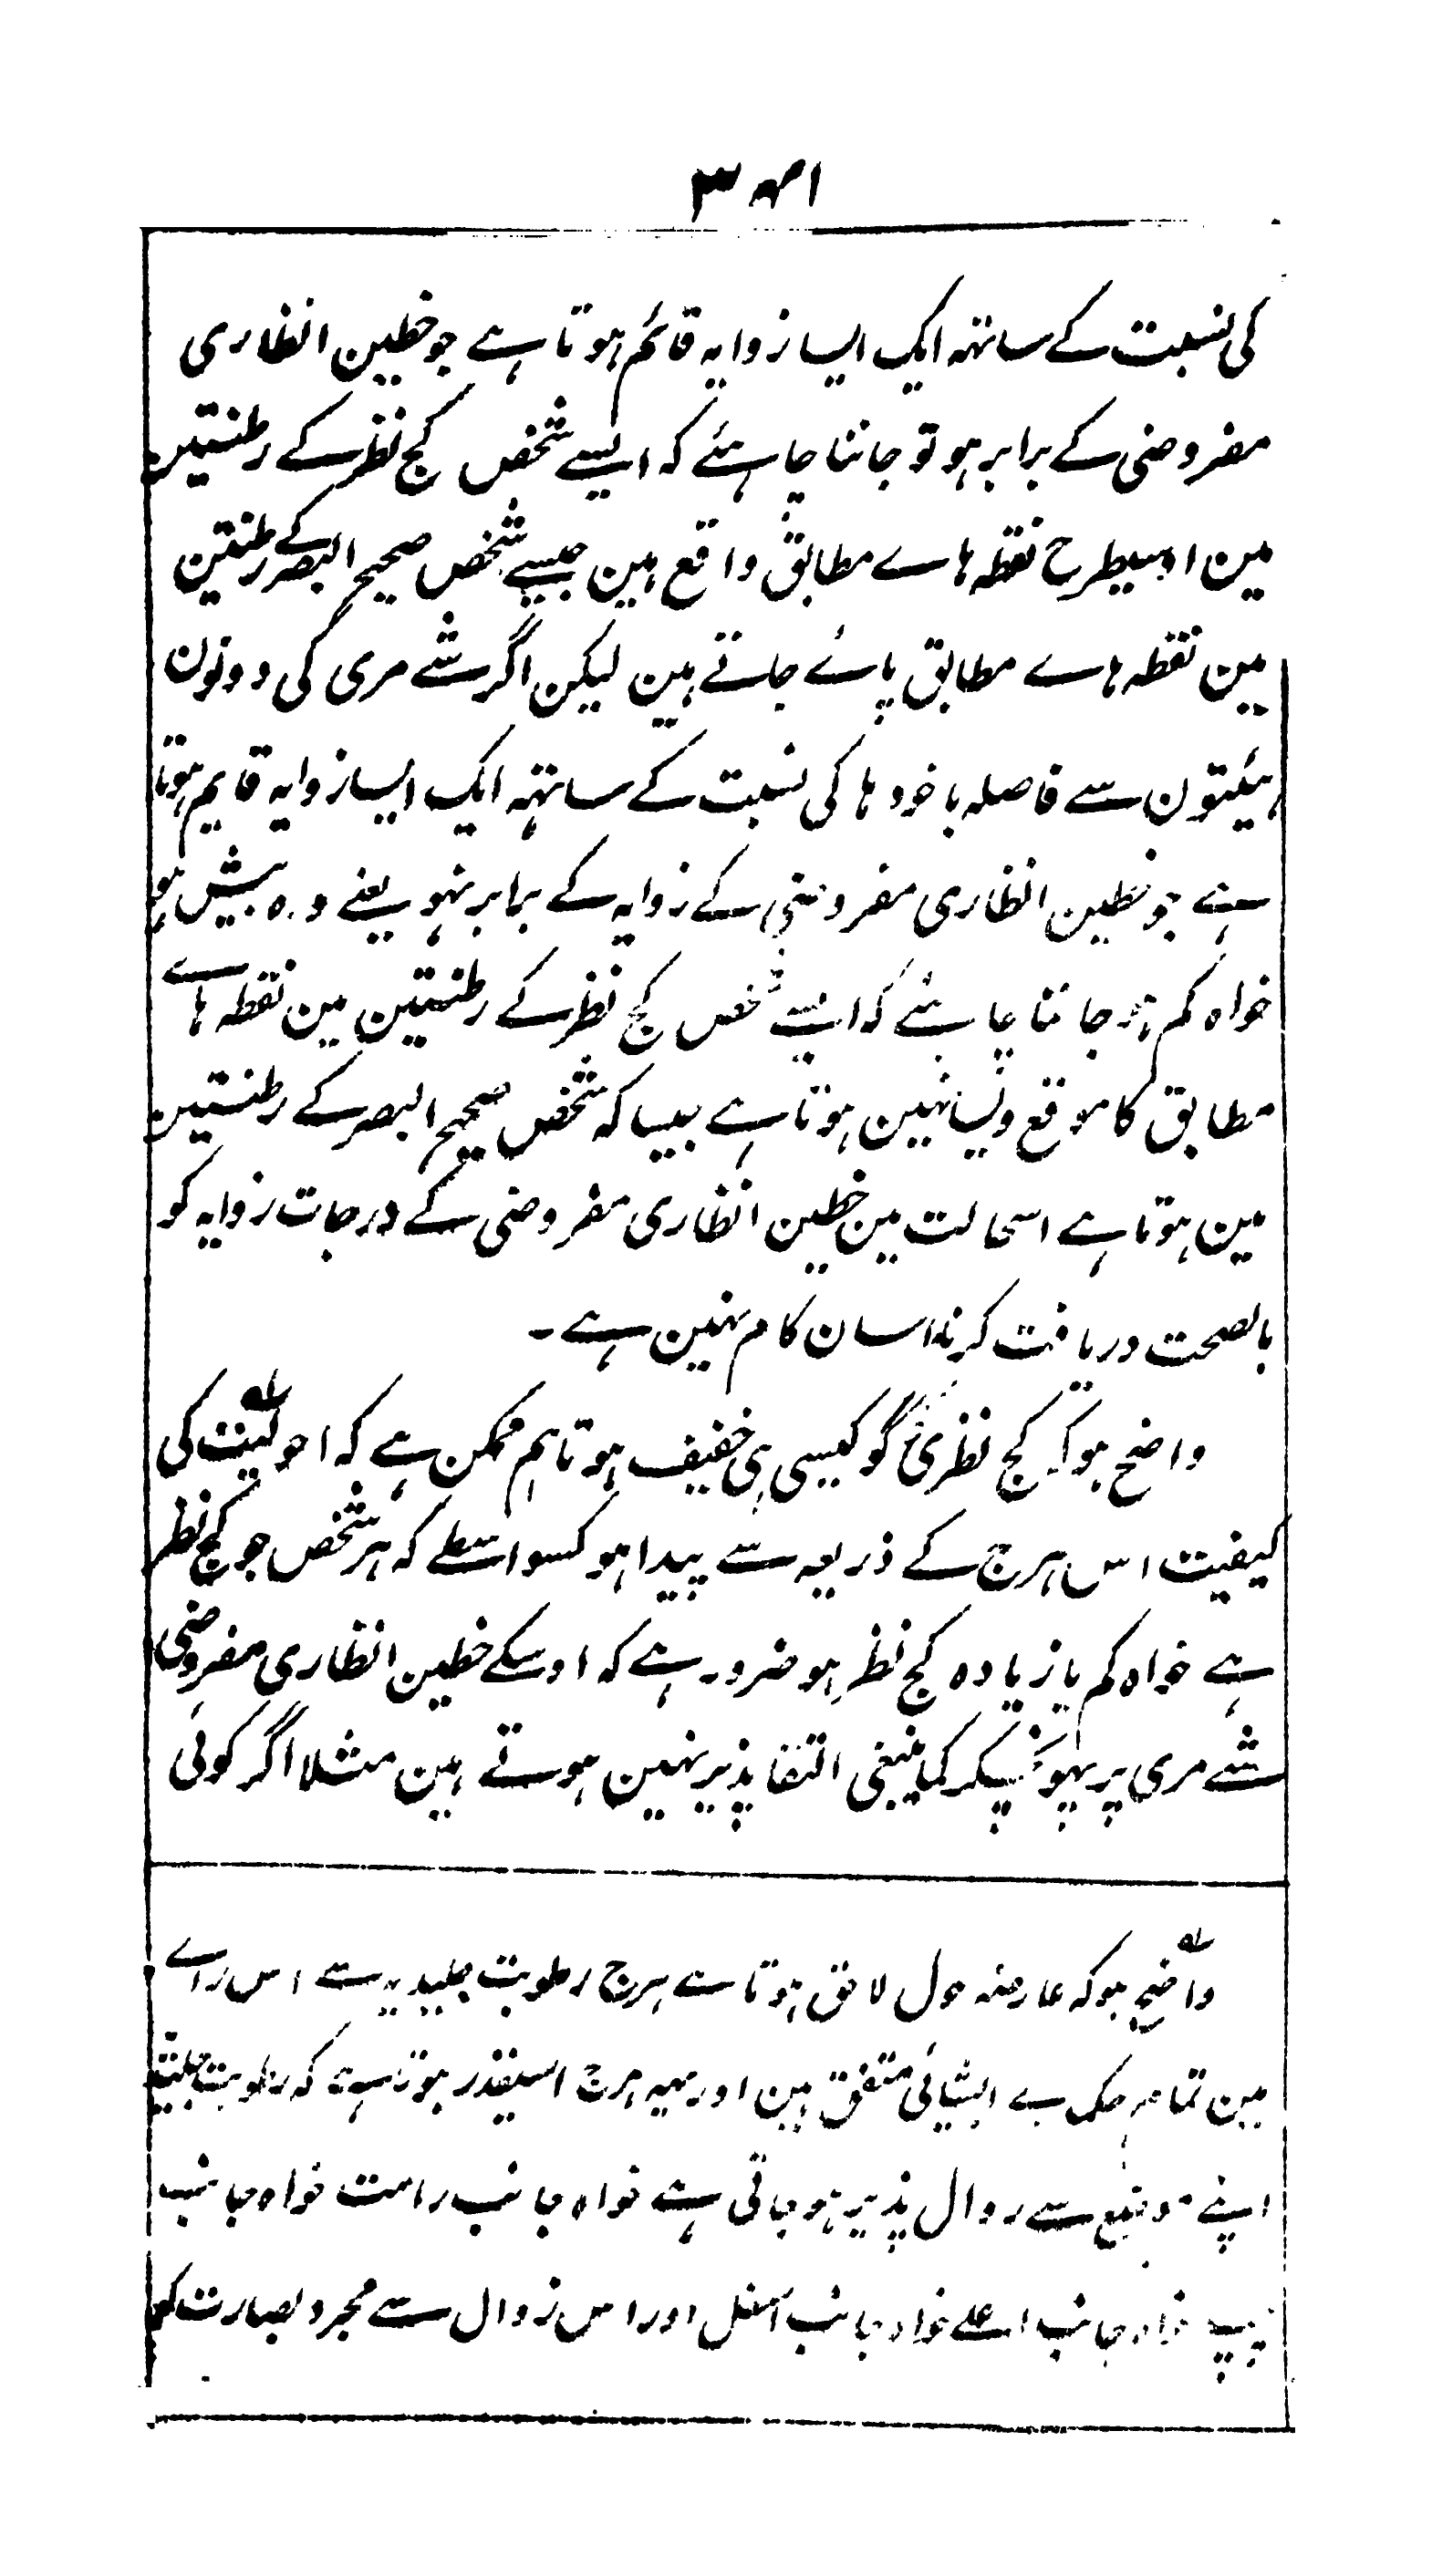 ۳۴۱
کی نسبت کے ساتہہ ایک ایسا زوایہ قائم ہوتا ہے جو خطین انظاری
مفروضی کے برابر ہو تو جاننا چاہئے کہ ایسے شخص کج نظر کے رطنتین
مین اوسیطرح نقطہ ہاے مطابق واقع ہین جیسے شخص صحیح البصر کے رطنتین
مین نقطہ ہاے مطابق پاے جاتے ہین لیکن اگر شے مری کی دونون
ہیئتون سے فاصلہ با خود ہا کی نسبت کے ساتہہ ایک ایسا زوایہ قایم ہوتا
ہے جو خطین انظاری مفروضی کے زوایہ کے برابر نہو یعنے وہ بیش ہو
خواہ کم ہو جاننا چاہئے کہ ایسے شخص کج نظر کے رطنتین مین نقطہ ہاے
مطابق کا موقع ویسا نہین ہوتا ہے جیسا کہ شخص صحیح البصر کے رطنتین
مین ہوتا ہے اسحالت مین خطین انظاری مفروضی کے درجات زوایہ کو
بالصحت دریافت کرنا اسان کام نہین ہے ۔
واضح ہو کہ کج نظری گو کیسی ہی خفیف ہو تاہم ممکن ہے کہ احولیت کی
کیفیت اس ہرج کے ذریعہ سے پیدا ہو کسواسطے کہ ہر شخص جو کج نظر
ہے خواہ کم یا زیادہ کج نظر ہو ضرور ہے کہ اوسکے خطین انظاری مفروضی
شے مری پر پہونچکر کماینبغی التقا پذیر نہین ہوتے ہین مثلا اگر کوئی
واضح ہو کہ عارضہ حول لاحق ہوتا ہے ہرج رطوبت جلیدیہ سے اس راے
مین تمام حکماے ایشیائی متفق ہین اور یہہ ہرج اسیقدر ہوتا ہے کہ رطوبت
اپنے موضع سے زوال پذیر ہو جاتی ہے خواہ جانب راست خواہ جانب
چپ خواہ جانب اعلے خواہ جانب اسفل اور اس زوال سے مجرد بصارت کو